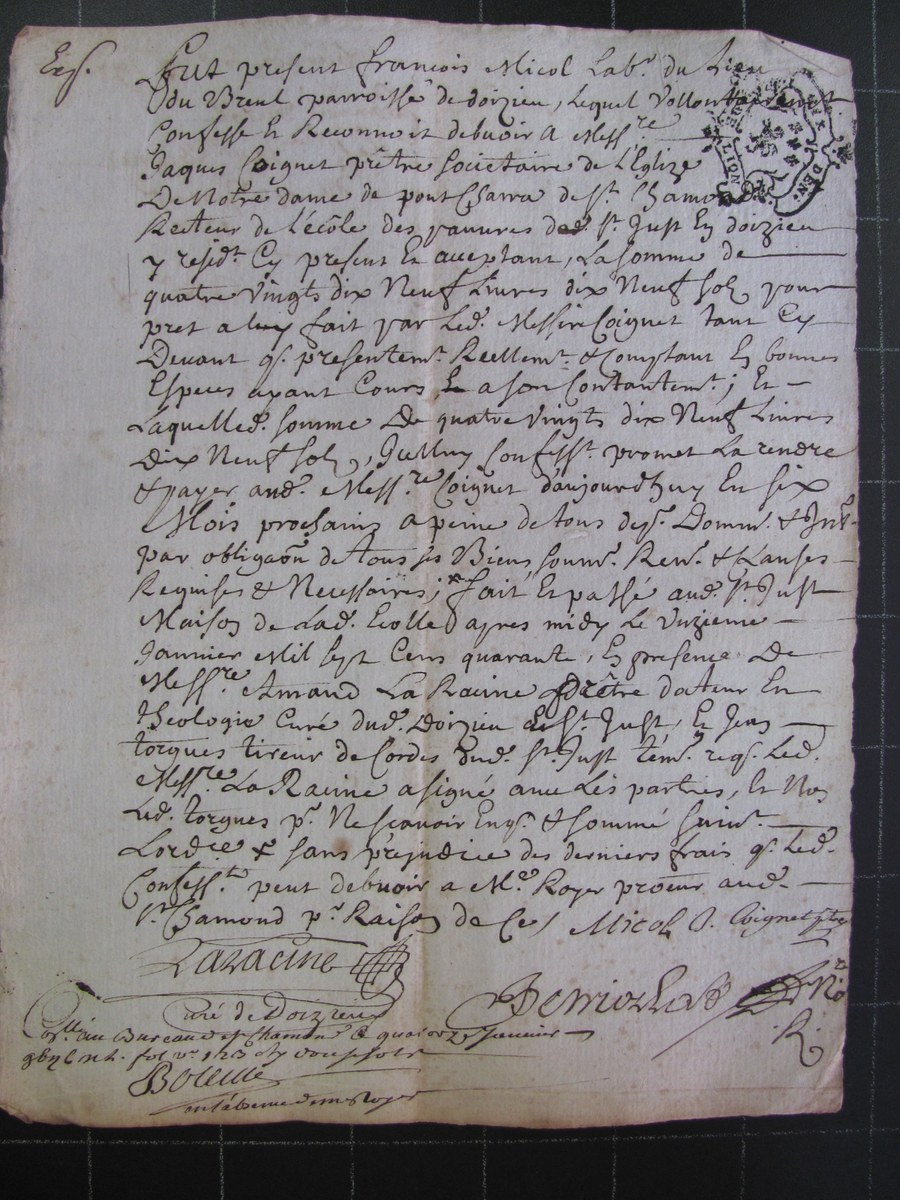 Exp.
Fut present francois Micol Lab.r du Lieu
du Breul parroisse de doizieu, Lequel Vollontairement
Confesse Et Reconnoit debuoir A Mess.re
Jaques Coignet prêtre societaire de L'Eglize
De Notre dame de pont Charra de S.t Chamond
Recteur de L'école des pauures dud. S.t Just En doizieu
y resid.t Cy present Et acceptant, La somme de
quatre Vingts dix Neuf Liures dix Neuf sols pour
pret a luy fait par Led. Messire Coignet tant Cy
Deuant q. presentem.t Reellem.t & Comptant En bonnes
Especes ayant Cours, a son Contantem.t; Et
Laquelle d. somme De quatre Vingts dix Neuf Liures
Dix Neuf sols, Jcelluy Confess.t promet La rendre
& payer aud. Mess.re Coignet d'aujourdhuy En six
Mois prochains a peine de tous dep. Domm. & Jnt.
par obliga͠on de tous ses Biens soum.s Ren. & Clauses
Requises & Necessaires; + fait Et passé aud. S.t Just
Maison de Lad. Ecolle apres midy Le Unzieme
Januier Mil sept Cens quarante, En presence De
Mess.re Amand La Racine Prêtre docteur En
theologie Curé dud. Doizieu et S.t Just, Et Jean
torgues tireur de Cordes dud. S.t Just tém. req. Led.
Mess.re La Racine a signé auec Les parties, Et Non
Led. torgues p.r Ne scauoir Enq. & sommé suiu.t
Lord.ce + sans prejudice des derniers frais q. Led.
Confess.t peut debuoir a M.e Royer procur. aud.
S.t Chamond p.r Raison de Ce / Micol J. Coignet ptre
Laracine
Curé de Doizieu
No.re
R.
au Bureau S.t Chamond Le quatorze Januier
fol v.o 123